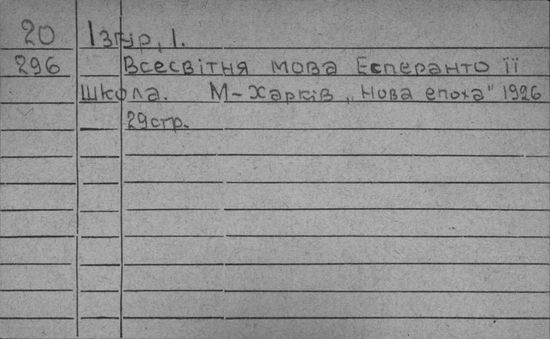 20 Ізгур, І.
296 Всесвітня мова Есперанто її
школа. М-Харків „Нова епоха" 1926
29стр.